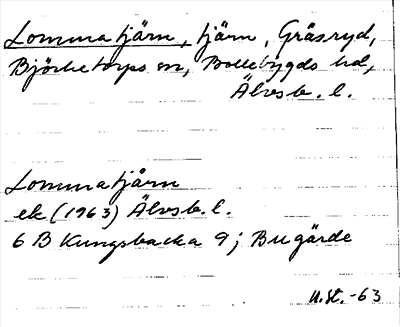 Lommatjärn, tjärn, Gräsryd,
Björketorps sn, Bollebygds hd,
Älvsb. l.
Lommatjärn
ek (1963) Älvsb. l.
6 B Kungsbacka 9; Bugärde
U.St. -63